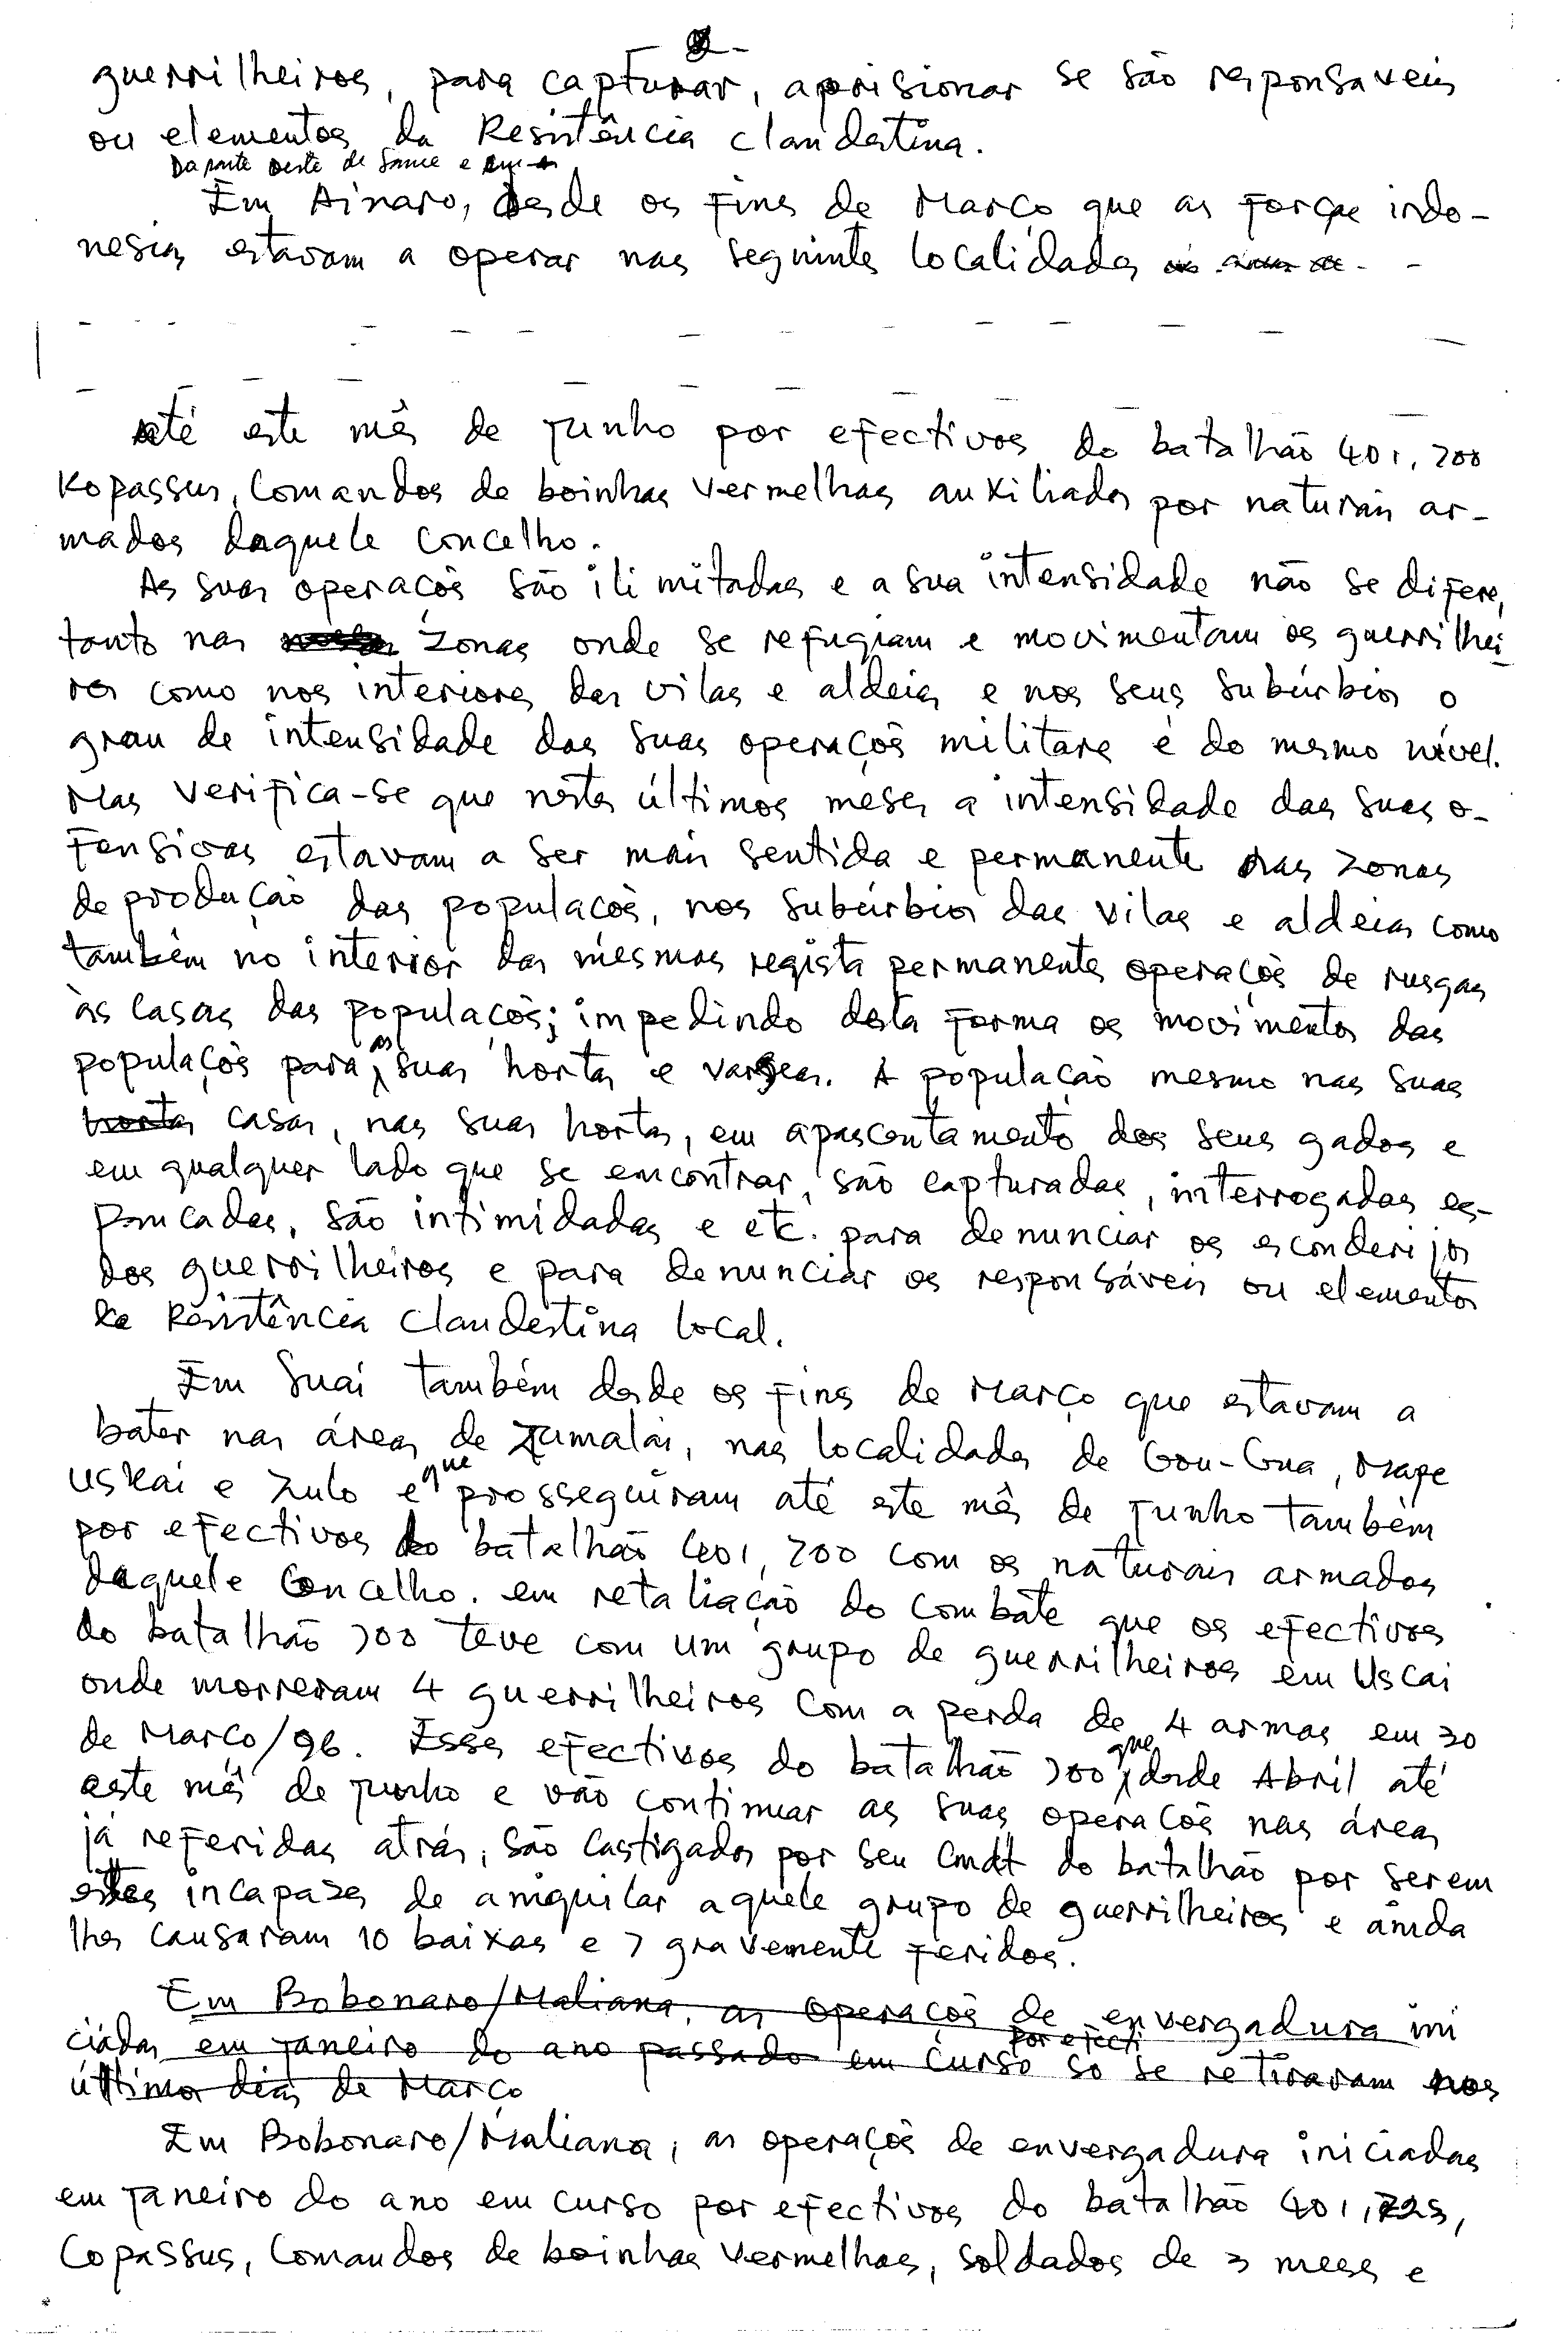 2-
guerrilheiros, para capturar, aprisionar se são responsaveis
ou elementos da Resistência clandestina.
Da parte oeste de Same e em
Em Ainaro, desde os fins de Março que as forças indo-
nesias estavam a operar nas seguintes localidades
até este mês de Junho por efectivos do batalhão 401, 700
Kopassus, Comandos de boinhas vermelhas auxiliados por naturais ar-
mados daquele concelho.
As suas operações são ilimitadas e a sua intensidade não se difere,
tanto nas zonas onde se refugiam e movimentam os guerrilhei-
ros como nos interiores das vilas e aldeias e nos seus subúrbios o
grau de intensidade das suas operações militares é do mesmo nível.
Mas verifica-se que nestes últimos meses a intensidade das suas o-
fensivas estavam a ser mais sentida e permanente nas zonas
de produção das populacões, nos subúrbios das vilas e aldeias como
também no interior das mesmas regista permanentes operações de rusgas
às casas das populacões; impedindo desta forma os movimentos das
populações para as suas hortas e varseas. A população mesmo nas suas
hortas casas, nas suas hortas, em apascentamento dos seus gados e
em qualquer lado que se encontrar, são capturadas, interrogadas es-
pancadas, são intimidadas e etc. para denunciar os esconderijos
dos guerrilheiros e para denunciar os responsáveis ou elementos
da Resistência Clandestina local.
Em Suai também desde os fins de Março que estavam a
bater nas áreas de Zumalai, nas localidades de Gou-Gua, Mape
Uskai e Zulo e que prosseguiram até este mês de Junho também
por efectivos do batalhão 401, 700 com os naturais armados
daquele Concelho. em retaliação do combate que os efectivos
do batalhão 700 teve com um grupo de guerrilheiros em Uscai
onde morreram 4 guerrilheiros com a perda de 4 armas em 30
de Março/96. Esses efectivos do batalhão 700 que desde Abril até
este mês de Junho e vão continuar as suas operacões nas áreas
já referidas atrás, são castigados por seu Cmdt do batalhão por serem
estes incapazes de aniquilar aquele grupo de guerrilheiros e ainda
lhes causaram 10 baixas e 7 gravemente feridos.
Em Bobonaro/Maliana, as operacões de envergadura ini
ciadas em Janeiro do ano passado em curso por efecti só se retiraram nos
últimos dias de Março
Em Bobonaro/Maliana, as operações de envergadura iniciadas
em Janeiro do ano em curso por efectivos do batalhão 401, 725,
Copassus, Comandos de boinhas vermelhas, soldados de 3 meses e